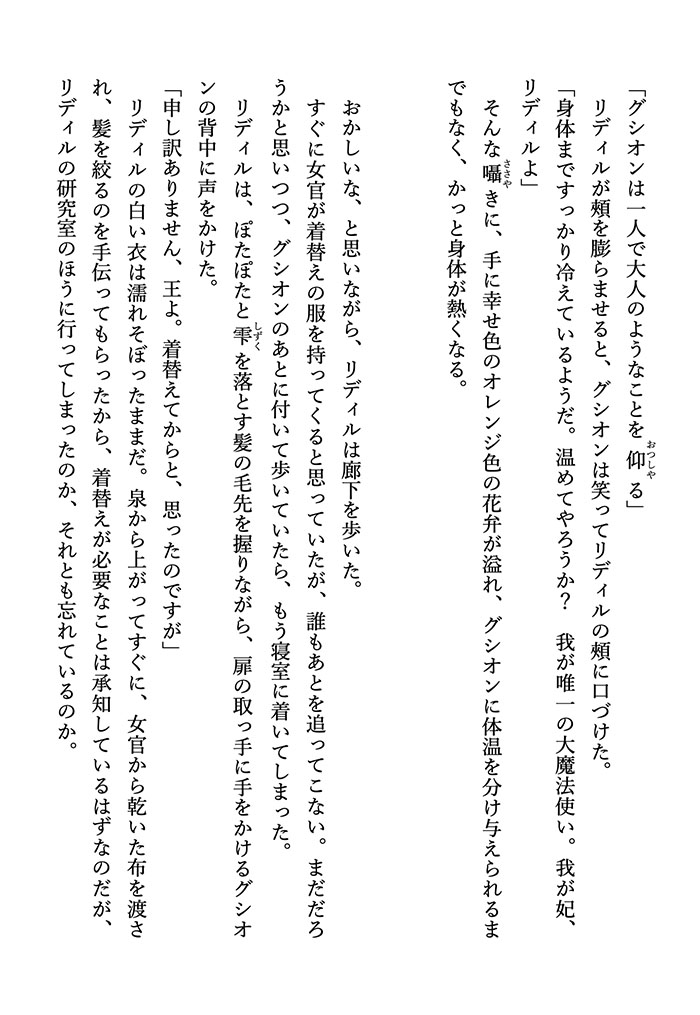 「グシオンは一人で大人のようなことを仰る」
おつしや
リディルが頬を膨らませると、グシオンは笑ってリディルの頬に口づけた。
「身体まですっかり冷えているようだ。温めてやろうか？　我が唯一の大魔法使い。我が妃、
リディルよ」
そんな囁きに、手に幸せ色のオレンジ色の花弁が溢れ、グシオンに体温を分け与えられるま
ささや
でもなく、かっと身体が熱くなる。
おかしいな、と思いながら、リディルは廊下を歩いた。
すぐに女官が着替えの服を持ってくると思っていたが、誰もあとを追ってこない。まだだろ
うかと思いつつ、グシオンのあとに付いて歩いていたら、もう寝室に着いてしまった。
リディルは、ぽたぽたと雫を落とす髪の毛先を握りながら、扉の取っ手に手をかけるグシオ
しずく
ンの背中に声をかけた。
「申し訳ありません、王よ。着替えてからと、思ったのですが」
リディルの白い衣は濡れそぼったままだ。泉から上がってすぐに、女官から乾いた布を渡さ
れ、髪を絞るのを手伝ってもらったから、着替えが必要なことは承知しているはずなのだが、
リディルの研究室のほうに行ってしまったのか、それとも忘れているのか。